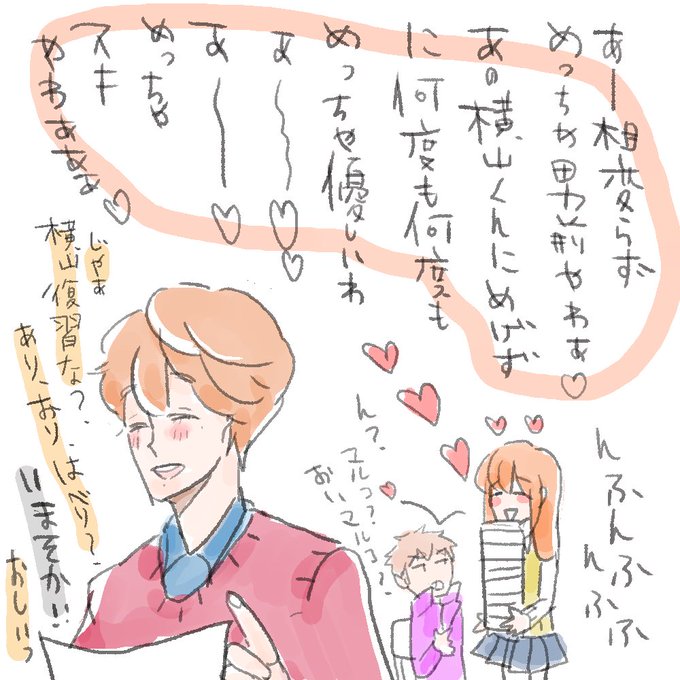 あー相変らず
めっちゃ男前やわぁ♡
あの横山くんにめげず
に何度も何度も
めっちゃ優しいわ
ぁ〜〜♡♡
あ〜〜♡
めっちゃ
スキ
やわぁぁぁ♡
んふんふふ
んふふ
ん？
マルっ？
おいマルコ？
じゃぁ
横山復習な？
あり、おり、はべり？
いまそかり
おしいっ